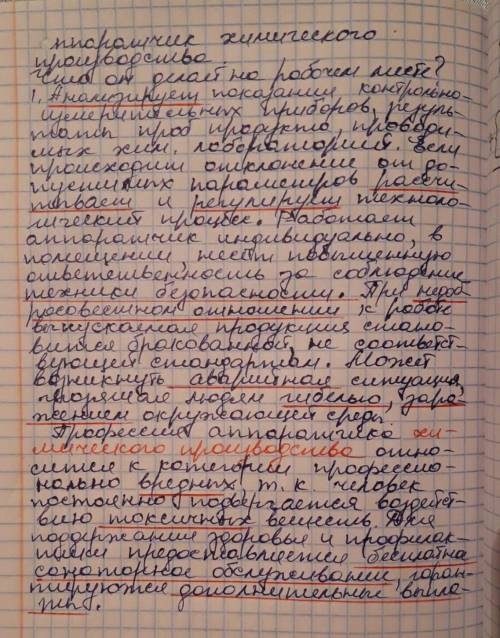 Аппаратчик химического
производства.
Что он делает на рабочем месте?
1. Анализирует показания контрольно-
измерительных приборов, резуль-
таты проб продукта, проводи-
мых хим. лабораторией. Если
происходит отклонение от до-
пустимых параметров рассчи-
тывает и регулирует техноло-
гический процесс. Работает
аппаратчик индивидуально, в
помещении, несёт повышенную
ответственность за соблюдение
техники безопасности. При недоб-
росовестном отношении к работе
выпускаемая продукция стано-
вится бракованной, не соответст-
вующей стандартам. Может
возникнуть аварийная ситуация,
грозящая людям гибелью, зара-
жением окружающей среды.
Профессия аппаратчика хи-
мического производства отно-
сится к категории профессио-
нально вредных, т. к. человек
постоянно подвергается воздейст-
вию токсичных веществ. Для
поддержания здоровья и профилак-
тики предоставляется бесплатное
санаторное обслуживание, гаран-
тируются дополнительные выпла-
ты.